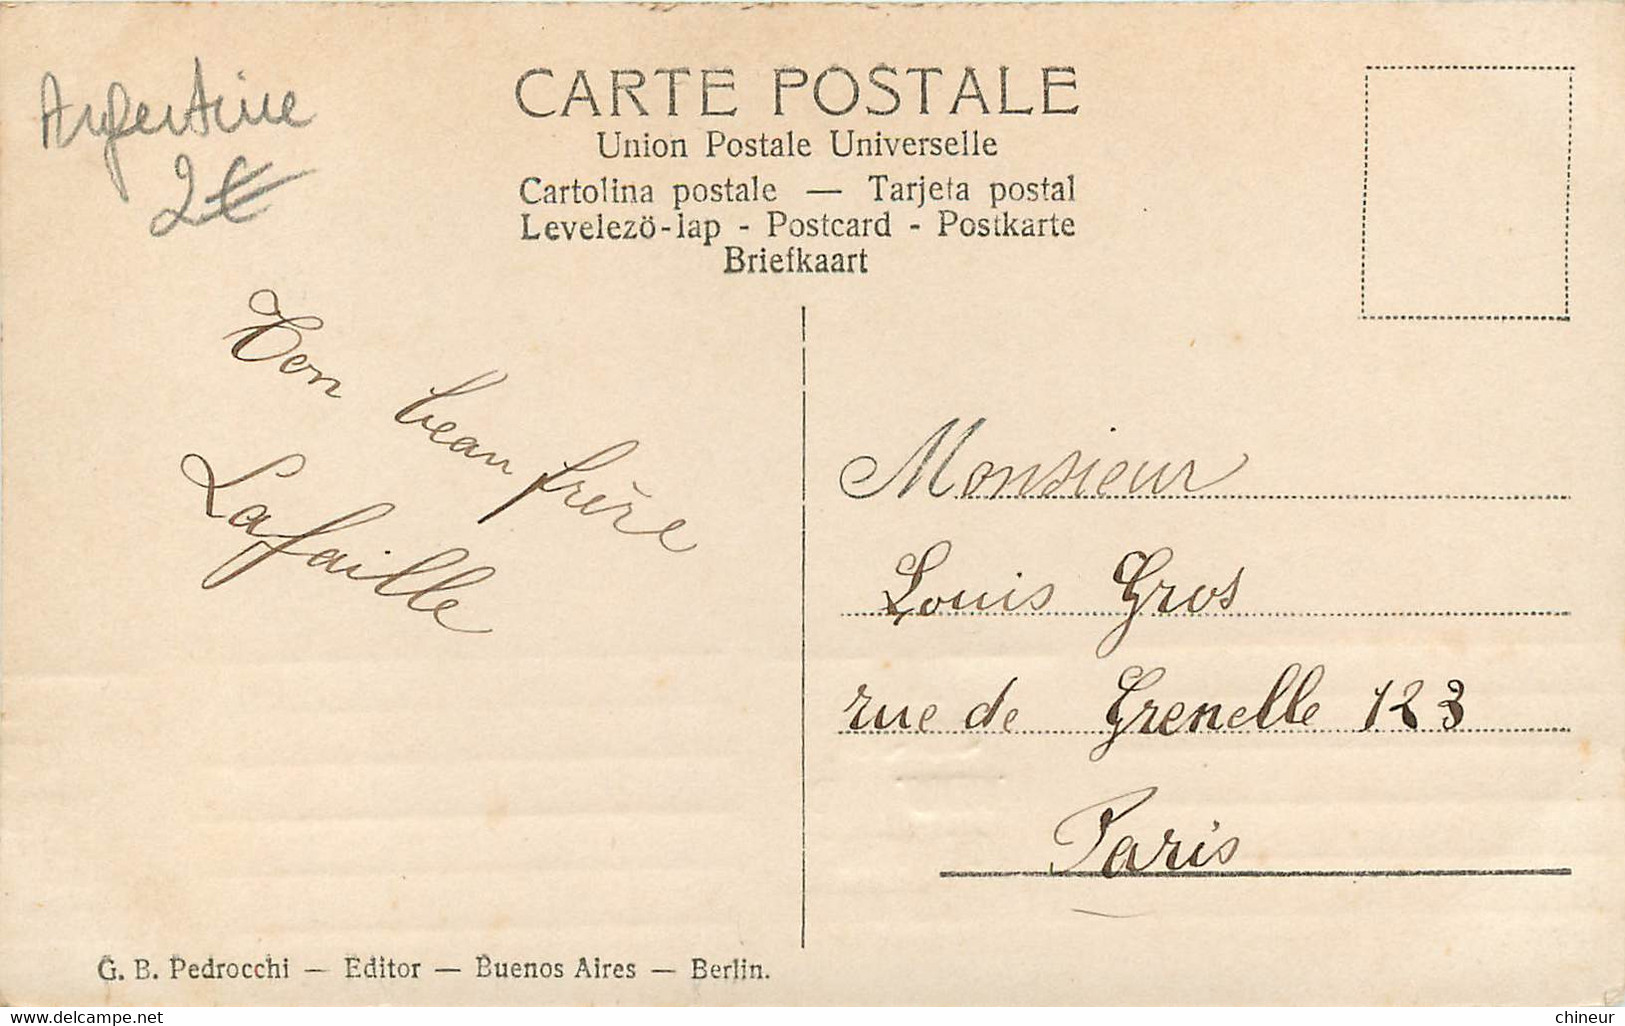 Argentine
2€
CARTE POSTALE
Union Postale Universelle
Cartolina postale — Tarjeta postal
Levelezö-lap - Postcard - Postkarte
Briefkaart
Ton beau frère
Lafaille
Monsieur
Louis Gros
rue de Grenelle 123
Paris
G. B. Pedrocchi — Editor — Buenos Aires — Berlin.
delcampe.net
chineur